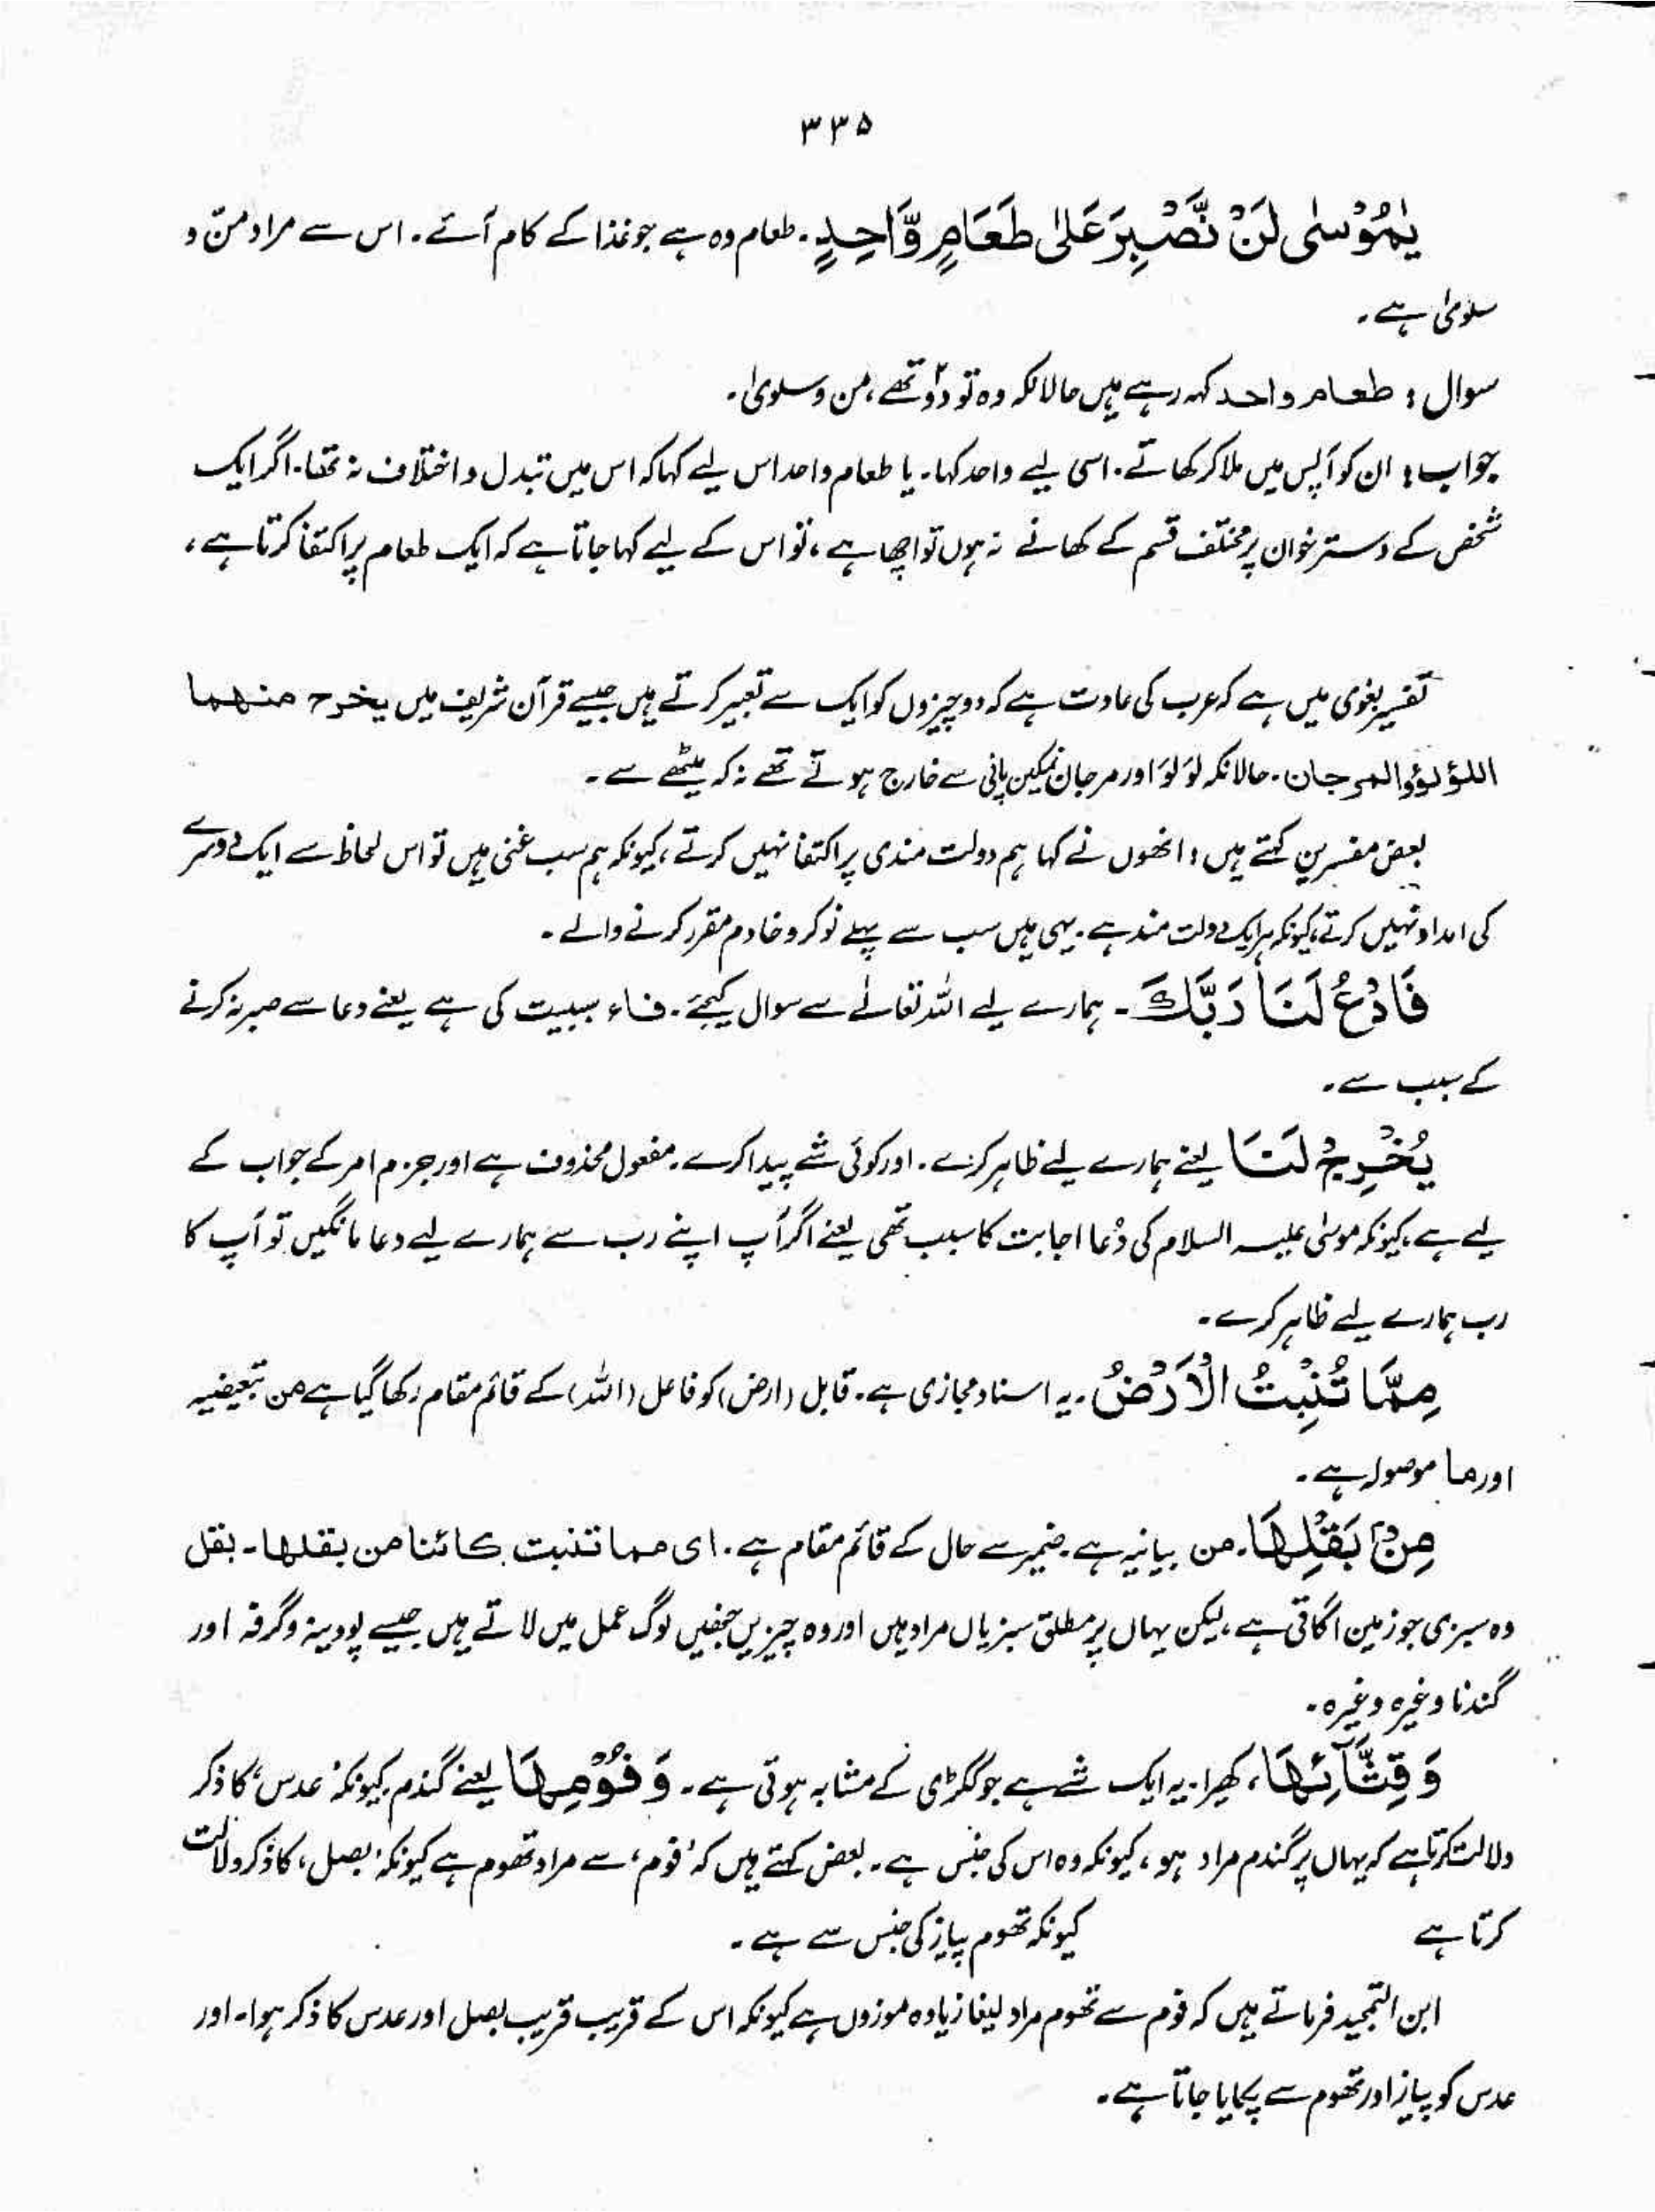 ۳۳۵
یٰمُوْسٰی لَنْ نَّصْبِرَ عَلٰی طَعَامٍ وَّاحِدٍ۔ طعام وہ ہے جو غذا کے کام آئے۔ اس سے مراد منّ و
سلویٰ ہے۔
سوال : طعام واحد کہہ رہے ہیں حالانکہ وہ تو دو تھے ، من و سلویٰ۔
جواب : ان کو آپس میں ملا کر کھاتے۔ اسی لیے واحد کہا۔ یا طعام واحد اس لیے کہا کہ اس میں تبدل و اختلاف نہ تھا۔ اگر ایک
شخص کے دسترخوان پر مختلف قسم کے کھانے نہ ہوں تو اچھا ہے ، تو اس کے لیے کہا جاتا ہے کہ ایک طعام پر اکتفا کرتا ہے ،
تفسیر بغوی میں ہے کہ عرب کی عادت ہے کہ دو چیزوں کو ایک سے تعبیر کرتے ہیں جیسے قرآن شریف میں یخرج منھما
اللؤلؤ والمرجان۔ حالانکہ لؤلؤ اور مرجان نمکین پانی سے خارج ہوتے تھے نہ کہ میٹھے سے۔
بعض مفسرین کہتے ہیں : انھوں نے کہا ہم دولت مندی پر اکتفا نہیں کرتے ، کیونکہ ہم سب غنی ہیں تو اس لحاظ سے ایک دوسرے
کی امداد نہیں کرتے کیونکہ ہر ایک دولت مند ہے۔ یہی ہیں سب سے پہلے نوکر و خادم مقرر کرنے والے۔
فَادْعُ لَنَا رَبَّكَ۔ ہمارے لیے اللہ تعالےٰ سے سوال کیجئے۔ فاء سببیت کی ہے یعنے دعا سے صبر نہ کرنے
کے سبب سے۔
یُخْرِجْ لَنَا یعنے ہمارے لیے ظاہر کرے۔ اور کوئی شے پیدا کرے۔ مفعول محذوف ہے اور جزم امر کے جواب کے
لیے ہے ، کیونکہ موسیٰ علیہ السلام کی دُعا اجابت کا سبب تھی یعنے اگر آپ اپنے رب سے ہمارے لیے دعا مانگیں تو آپ کا
رب ہمارے لیے ظاہر کرے۔
مِمَّا تُنْبِتُ الْاَرْضُ۔ یہ اسناد مجازی ہے۔ قابل (ارض) کو فاعل (اللہ) کے قائم مقام رکھا گیا ہے من تبعیضیہ
اور ما موصولہ ہے۔
مِنْۢ بَقْلِهَا۔ من بیانیہ ہے۔ ضمیر سے حال کے قائم مقام ہے۔ ای مما تنبت کائنا من بقلها۔ بقل
وہ سبزی جو زمین اگاتی ہے ، لیکن یہاں پر مطلق سبزیاں مراد ہیں اور وہ چیزیں جنھیں لوگ عمل میں لاتے ہیں جیسے پودینہ و گرفہ اور
گندنا وغیرہ وغیرہ۔
وَ قِثَّآئِهَا ، کھیرا۔ یہ ایک شے ہے جو ککڑی کے مشابہ ہوتی ہے۔ وَ فُوْمِهَا یعنے گندم کیونکہ 'عدس' کا ذکر
دلالت کرتا ہے کہ یہاں پر گندم مراد ہو ، کیونکہ وہ اس کی جنس ہے۔ بعض کہتے ہیں کہ 'فوم' سے مراد تھوم ہے کیونکہ 'بصل' کا ذکر دلالت
کرتا ہے کیونکہ تھوم پیاز کی جنس سے ہے۔
ابن التمجید فرماتے ہیں کہ فوم سے تھوم مراد لینا زیادہ موزوں ہے کیونکہ اس کے قریب قریب بصل اور عدس کا ذکر ہوا۔ اور
عدس کو پیاز اور تھوم سے پکایا جاتا ہے۔